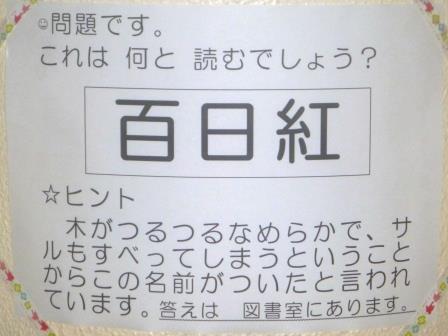 ☺問題です。
これは 何と 読むでしょう？
百日紅
☆ヒント
　木がつるつるなめらかで、サ
ルもすべってしまうということ
からこの名前がついたと言われ
ています。答えは　図書室にあります。